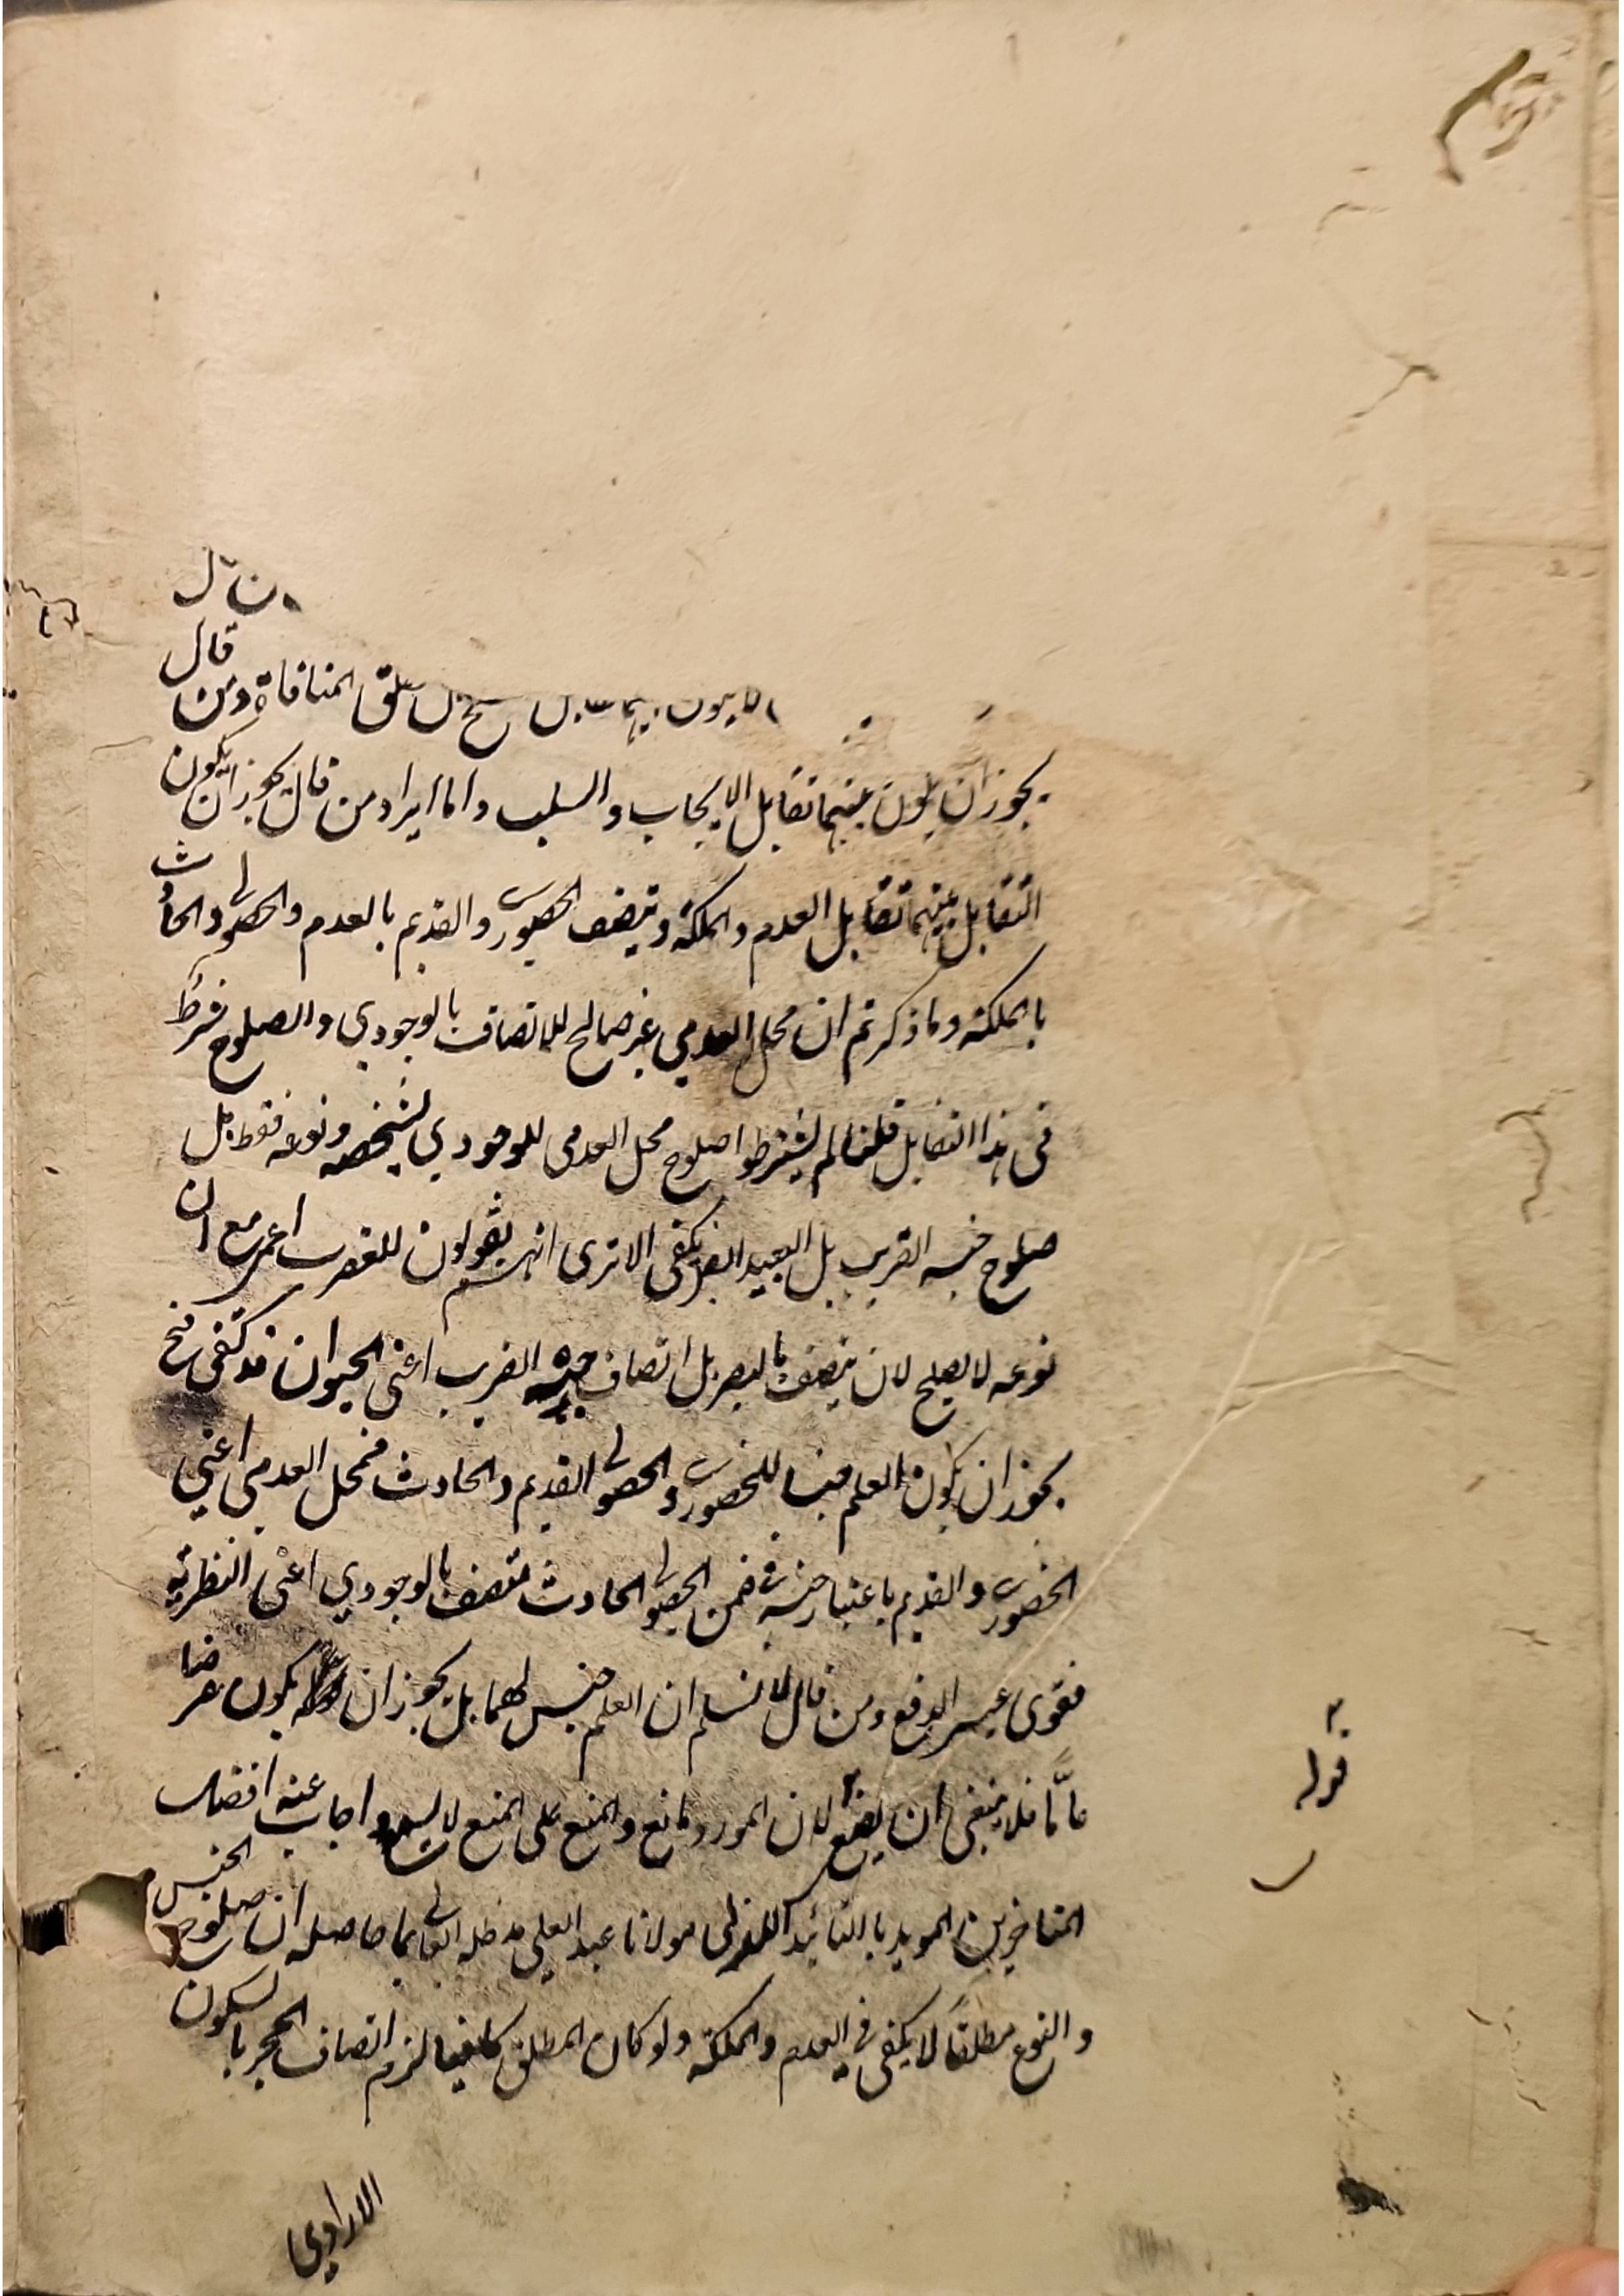 قال
المنافاة ومن
يجوز ان يكون بينهما تقابل الايجاب والسلب واما ايراد من قال يجوز ان يكون
التقابل بينهما تقابل العدم والملكة ويتصف الحضوري والقديم بالعدم والحصولي والحادث
بالملكة وما ذكرتم ان محل العدمي غير صالح للاتصاف بالوجودي والصلوح شرط
فى هذا التقابل قلنا لم يشترطوا صلوح محل العدمى للوجودي لشخصه ونوعه فقط بل
صلوح جنسه القريب بل البعيد ايضا يكفى الا ترى انهم يقولون للعقرب اعمى مع ان
نوعه لا يصلح لان يتصف بالبصر بل اتصاف جنسه القريب اعنى الحيوان قد يكفى فح
يجوز ان يكون العلم جنسا للحضوري والحصولي القديم والحادث فمحل العدمي اعني
الحضوري والقديم باعتبار جنسه في ضمن الحصولي الحادث متصف بالوجودي اعنى النظرية
فقوى عسير الدفع ومن قال لا نسلم ان العلم جنس لهما بل يجوز ان يكون عرضا
عامًّا فلا ينبغى ان يصغى لان المورد مانع والمنع على المنع لا يسع واجاب عنه افضل
المتاخرين المويد بالتائيد مولانا عبد العلي مد ظله العالي بما حاصله ان صلوح الجنس
والنوع مطلقًا لا يكفى في العدم والملكة ولو كان المطلق كافيا لزم اتصاف الحجر بالسكون
الارادي
قوله